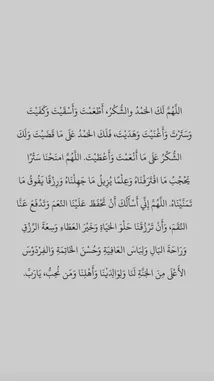 اللَّهُمَّ لَكَ الحَمْدُ والشُّكْرُ، أَطْعَمْتَ وَأَسْقَيْتَ وَكَفَيْتَ
وَسَتَرْتَ وَأَغْنَيْتَ وَهَدَيْتَ، فَلَكَ الحَمْدُ عَلَى مَا قَضَيْتَ وَلَكَ
الشُّكْرُ عَلَى مَا أَنْعَمْتَ وَأَعْطَيْتَ. اللَّهُمَّ امنَحْنَا سَتْرًا
يَحْجُبُ مَا اقْتَرَفْنَاهُ وَعِلْمًا يُزِيلُ مَا جَهِلْنَاهُ وَرِزْقًا يَفُوقُ مَا
تَمَنَّيْنَاهُ. اللَّهُمَّ إِنِّي أَسْأَلُكَ أَنْ تَحْفَظَ عَلَيْنَا النِّعَمَ وَتَدْفَعَ عَنَّا
النِّقَمَ، وَأَنْ تَرْزُقَنَا حُلْوَ الحَيَاةِ وَخَيْرَ العَطَاءِ وَسِعَةَ الرِّزْقِ
وَرَاحَةَ البَالِ وَلِبَاسَ العَافِيَةِ وَحُسْنَ الخَاتِمَةِ وَالفِرْدَوْسَ
الأَعْلَى مِنَ الجَنَّةِ لَنَا وَلِوَالِدَيْنَا وَأَهْلِنَا وَمَن نُحِبُّ، يَارَبّ.